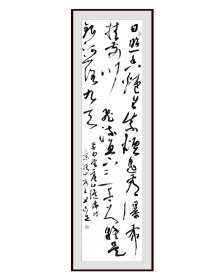 日照香爐生紫煙遙看瀑布
掛前川飛流直下三千尺疑是
銀河落九天
李白望廬山瀑布